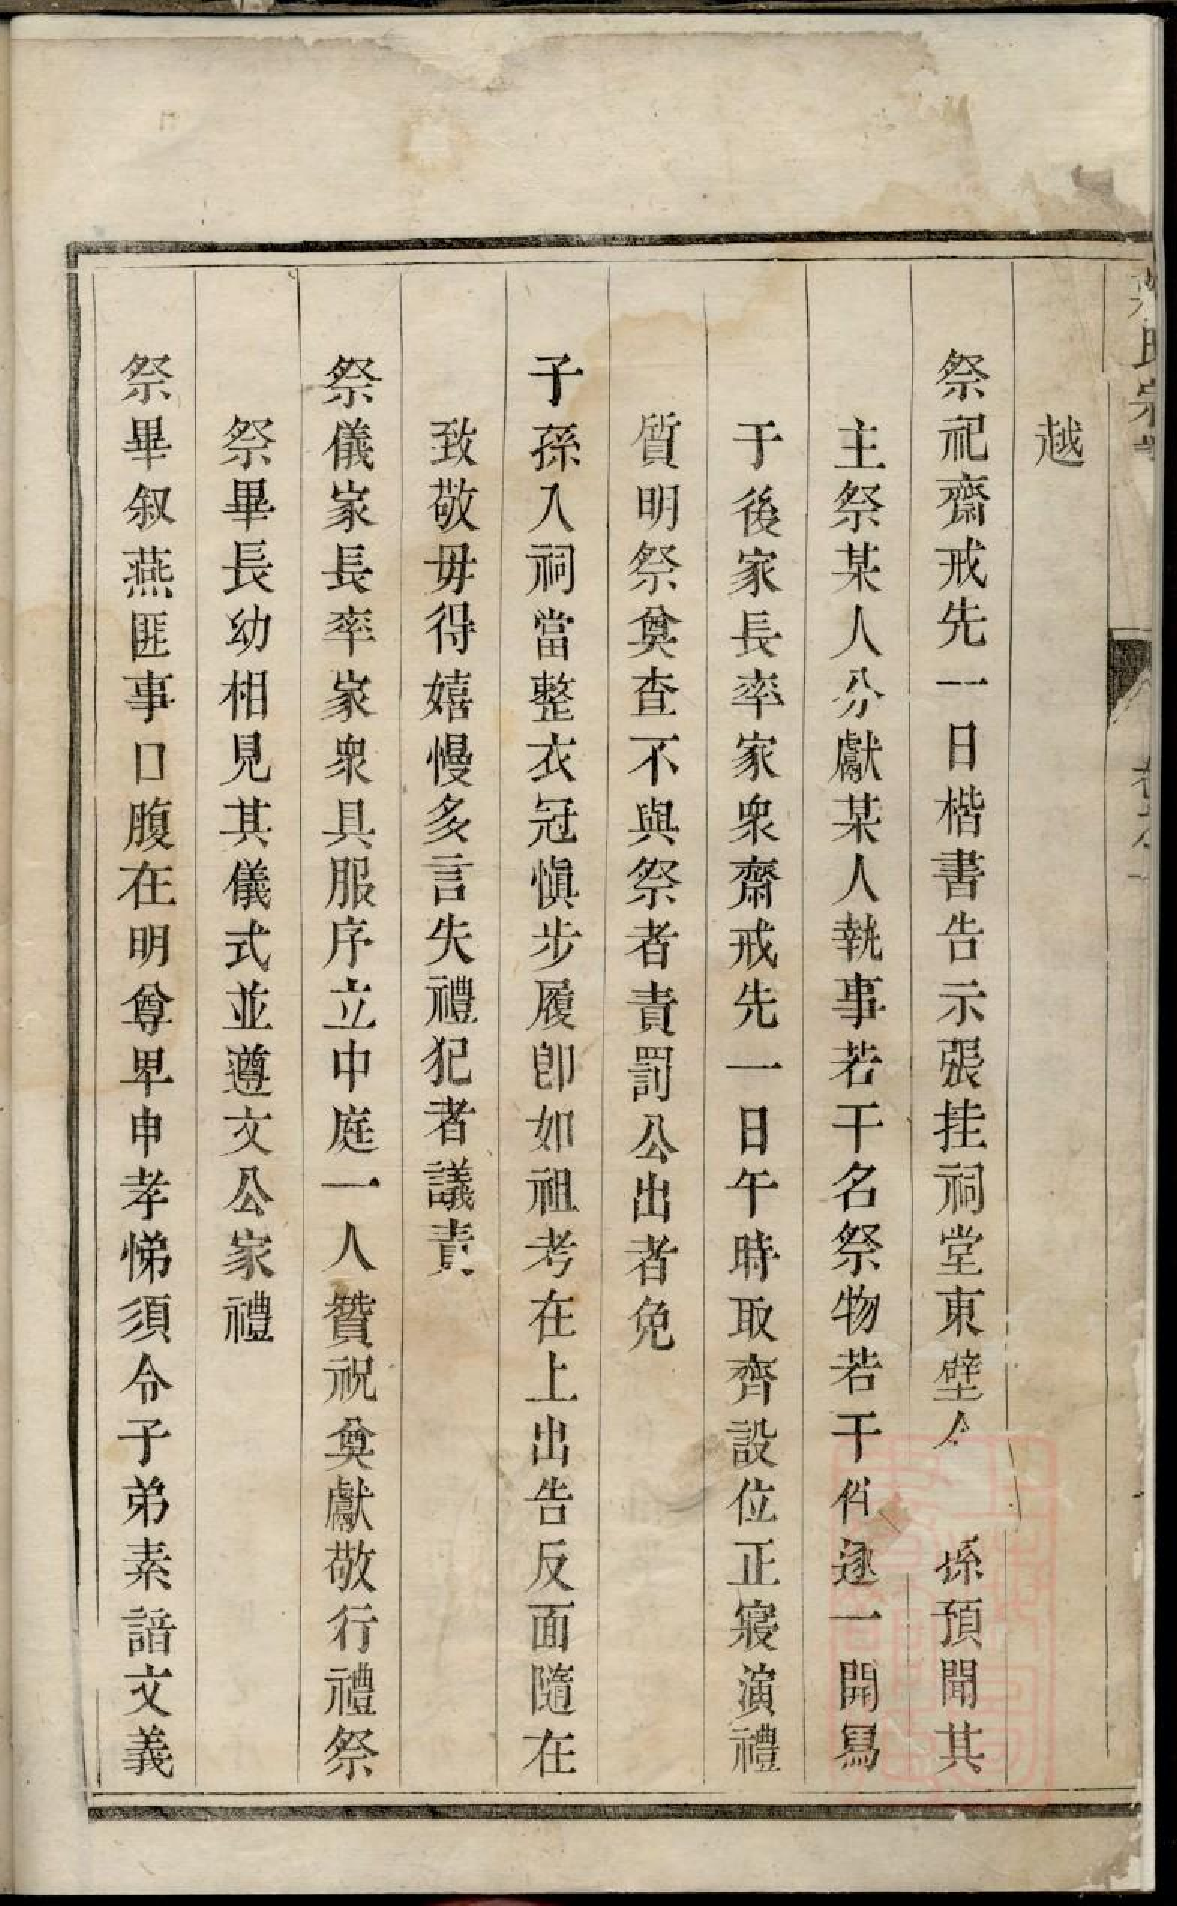 氏宗
越
祭祀齋戒先一日楷書告示張挂祠堂東壁令孫預聞其
主祭某人分獻某人執事若干名祭物若干俱逐一開寫
于後家長率家衆齋戒先一日午時取齊設位正寢演禮
質明祭奠查不與祭者責罰公出者免
子孫入祠當整衣冠愼步履卽如祖考在上出告反面隨在
致敬毋得嬉慢多言失禮犯者議責
祭儀家長率家衆具服序立中庭一人贊祝奠獻敬行禮祭
祭畢長幼相見其儀式並遵文公家禮
祭畢叙燕匪事口腹在明尊卑申孝悌須令子弟素諳文義